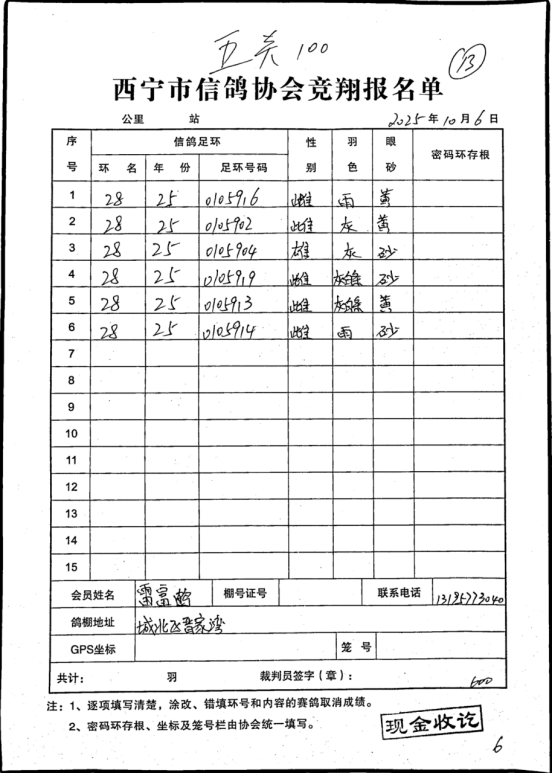 五关 100
13
西宁市信鸽协会竞翔报名单
公里 站 2025年10月6日
序号 信鸽足环 性别 羽色 眼砂 密码环存根
环名 年份 足环号码
1 28 25 0105916 雌 雨 黄
2 28 25 0105902 雌 灰 黄
3 28 25 0105904 雄 灰 砂
4 28 25 0105919 雌 灰绛 砂
5 28 25 0105913 雌 灰绛 黄
6 28 25 0105914 雌 雨 砂
7
8
9
10
11
12
13
14
15
会员姓名 雷富 棚号证号 联系电话 13195773040
鸽棚地址 城北区晋家湾
GPS坐标 笼号
共计: 羽 裁判员签字(章): 600
注:1、逐项填写清楚,涂改、错填环号和内容的赛鸽取消成绩。
2、密码环存根、坐标及笼号栏由协会统一填写。
现金收讫
6